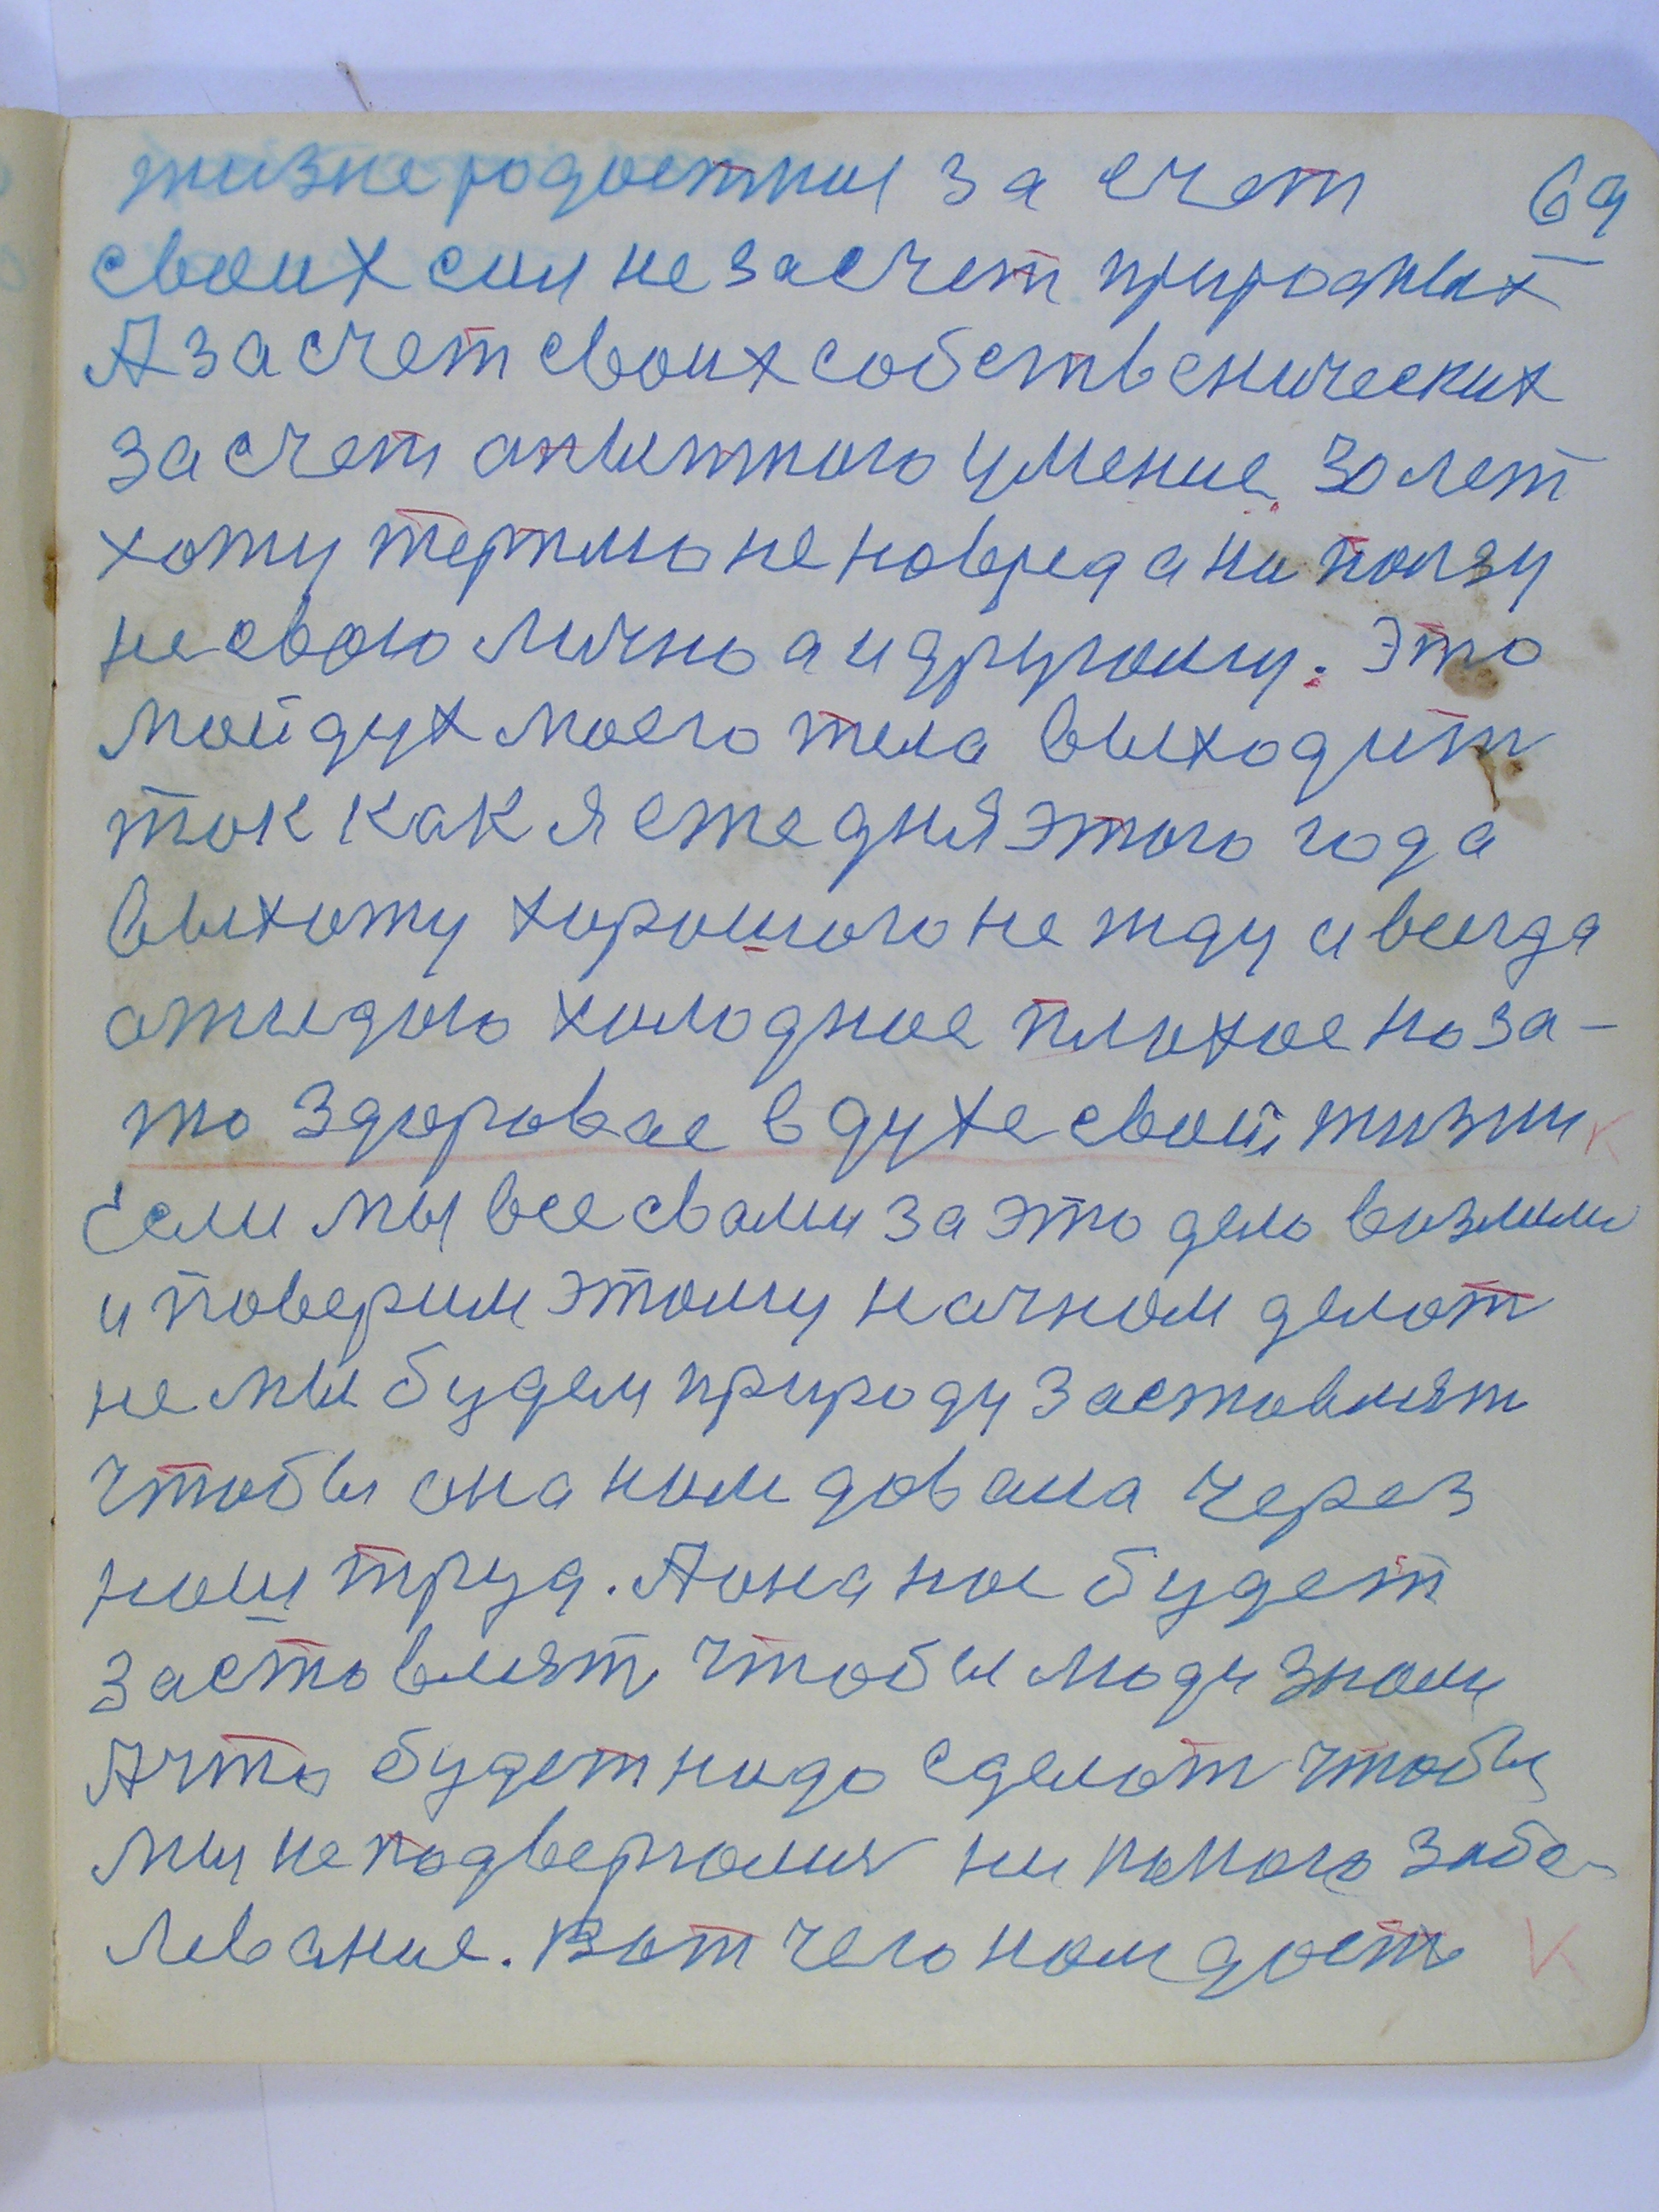 жизнерадостныи за счет 69
своих сил не за счет природных
А за счет своих собственических
за счет опытного умение 30 лет
хожу терплю не новред а на ползу
не свою лично а и другому. Это
мой дух моего тела выходит
так как я ежедня этого года
выхожу хорошого не жду а всегда
ожидаю холодное плохое но за-
то здоровае в духе своей жизни
Если мы все свами за это дело возмимс
и поверим этому начном делат
не мы будем природу заставлят
чтобы она нам давала через
наш труд. А она нас будет
заставлят чтобы люди знали
А что будет надо сделат чтобы
мы не подвергались никакого забо-
левание. Вот чего нам даст